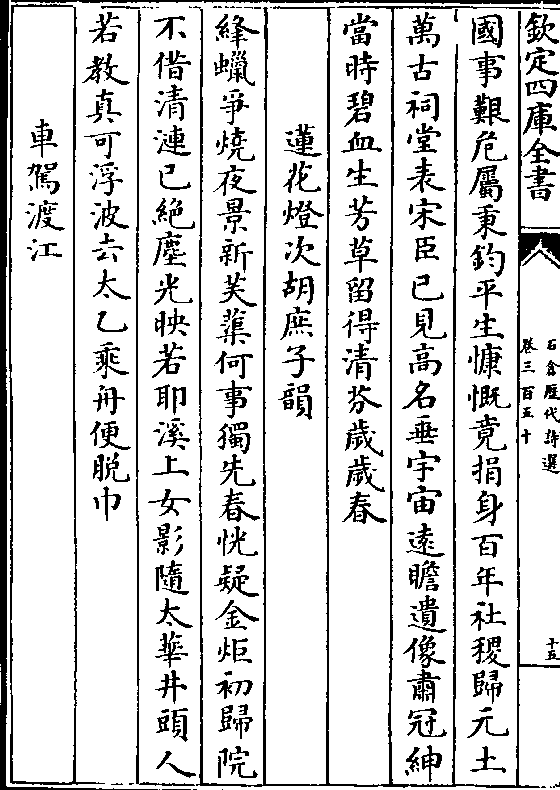 欽定四庫全書
石倉歷代詩選
卷三百五十
十五
國事艱危屬秉鈞平生慷慨竟捐身百年社稷歸元土
萬古祠堂表宋臣已見髙名垂宇宙遠瞻遺像肅冠紳
當時碧血生芳草留得清芬歲歲春
蓮花燈次胡庶子韻
絳蠟爭燒夜景新芙蕖何事獨先春恍疑金炬初歸院
不借清漣已絶塵光映若耶溪上女影隨太華井頭人
若教真可浮波去太乙乘舟便脱巾
車駕渡江